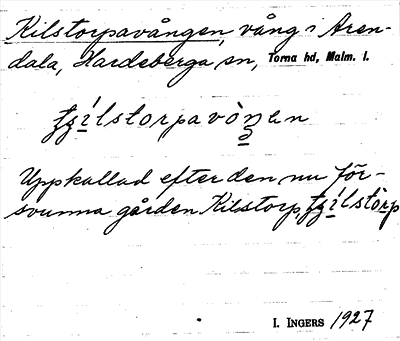 Kilstorpavången, vång i Aren-
dala, Hardeberga sn, Torna hd, Malm. l.
tʒi̱lstorpavò̱ŋən
Uppkallad efter den nu för-
svunna gården Kilstorp, tʒí̱lstò̱rp
I. INGERS 1927